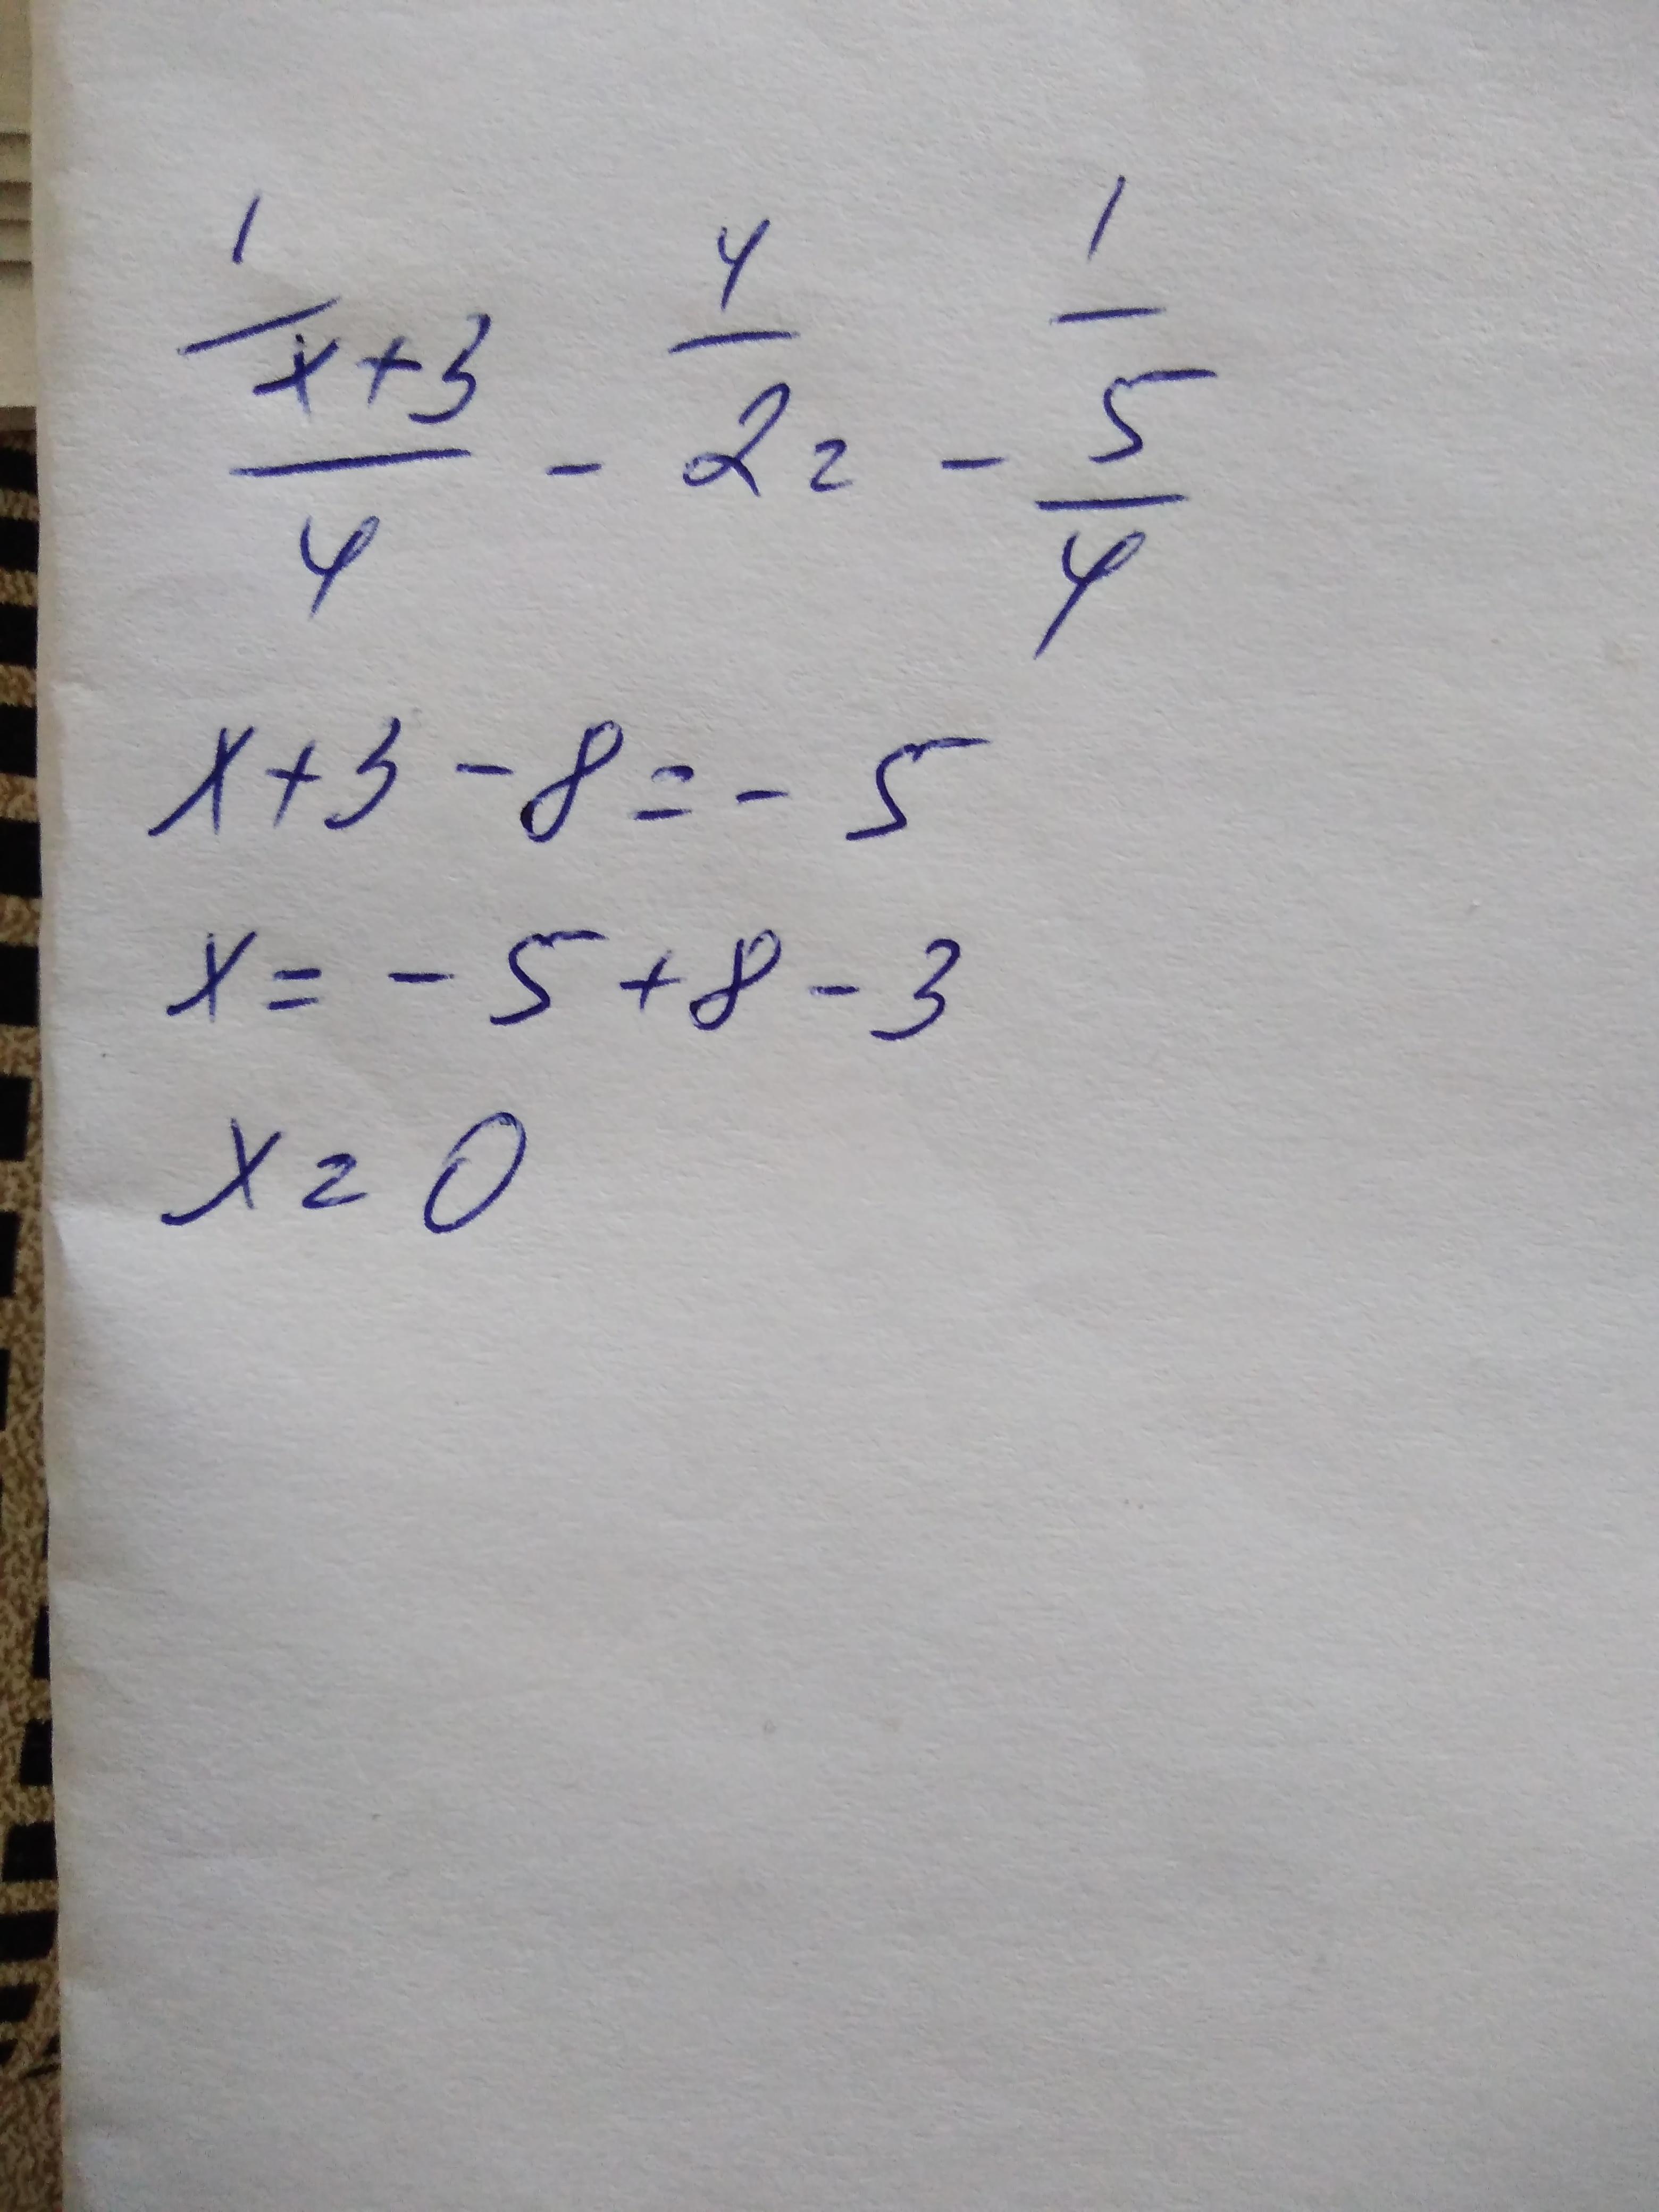 1 4 1
x+3/4 - 2 = - 5/4
x+3-8=-5
x=-5+8-3
x=0